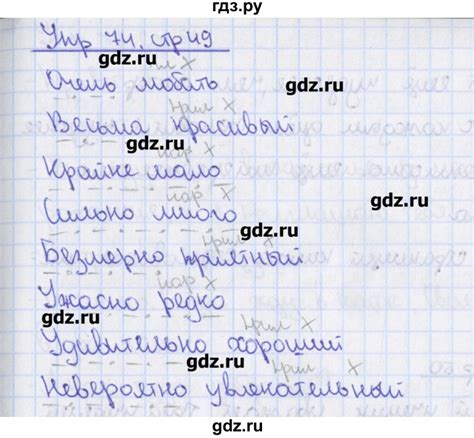 гдз.ру
Упр 74. стр 49
gdz.ru
х
Очень любить
gdz.ru
прил х
Весьма красивый
gdz.ru
нар х
Крайне мало
gdz.ru
нар х
Сильно много
gdz.ru
прил х
Безмерно приятный
gdz.ru
нар х
Ужасно редко
gdz.ru
прил х
Удивительно хороший
gdz.ru
прил х
Невероятно увлекательный
gdz.ru